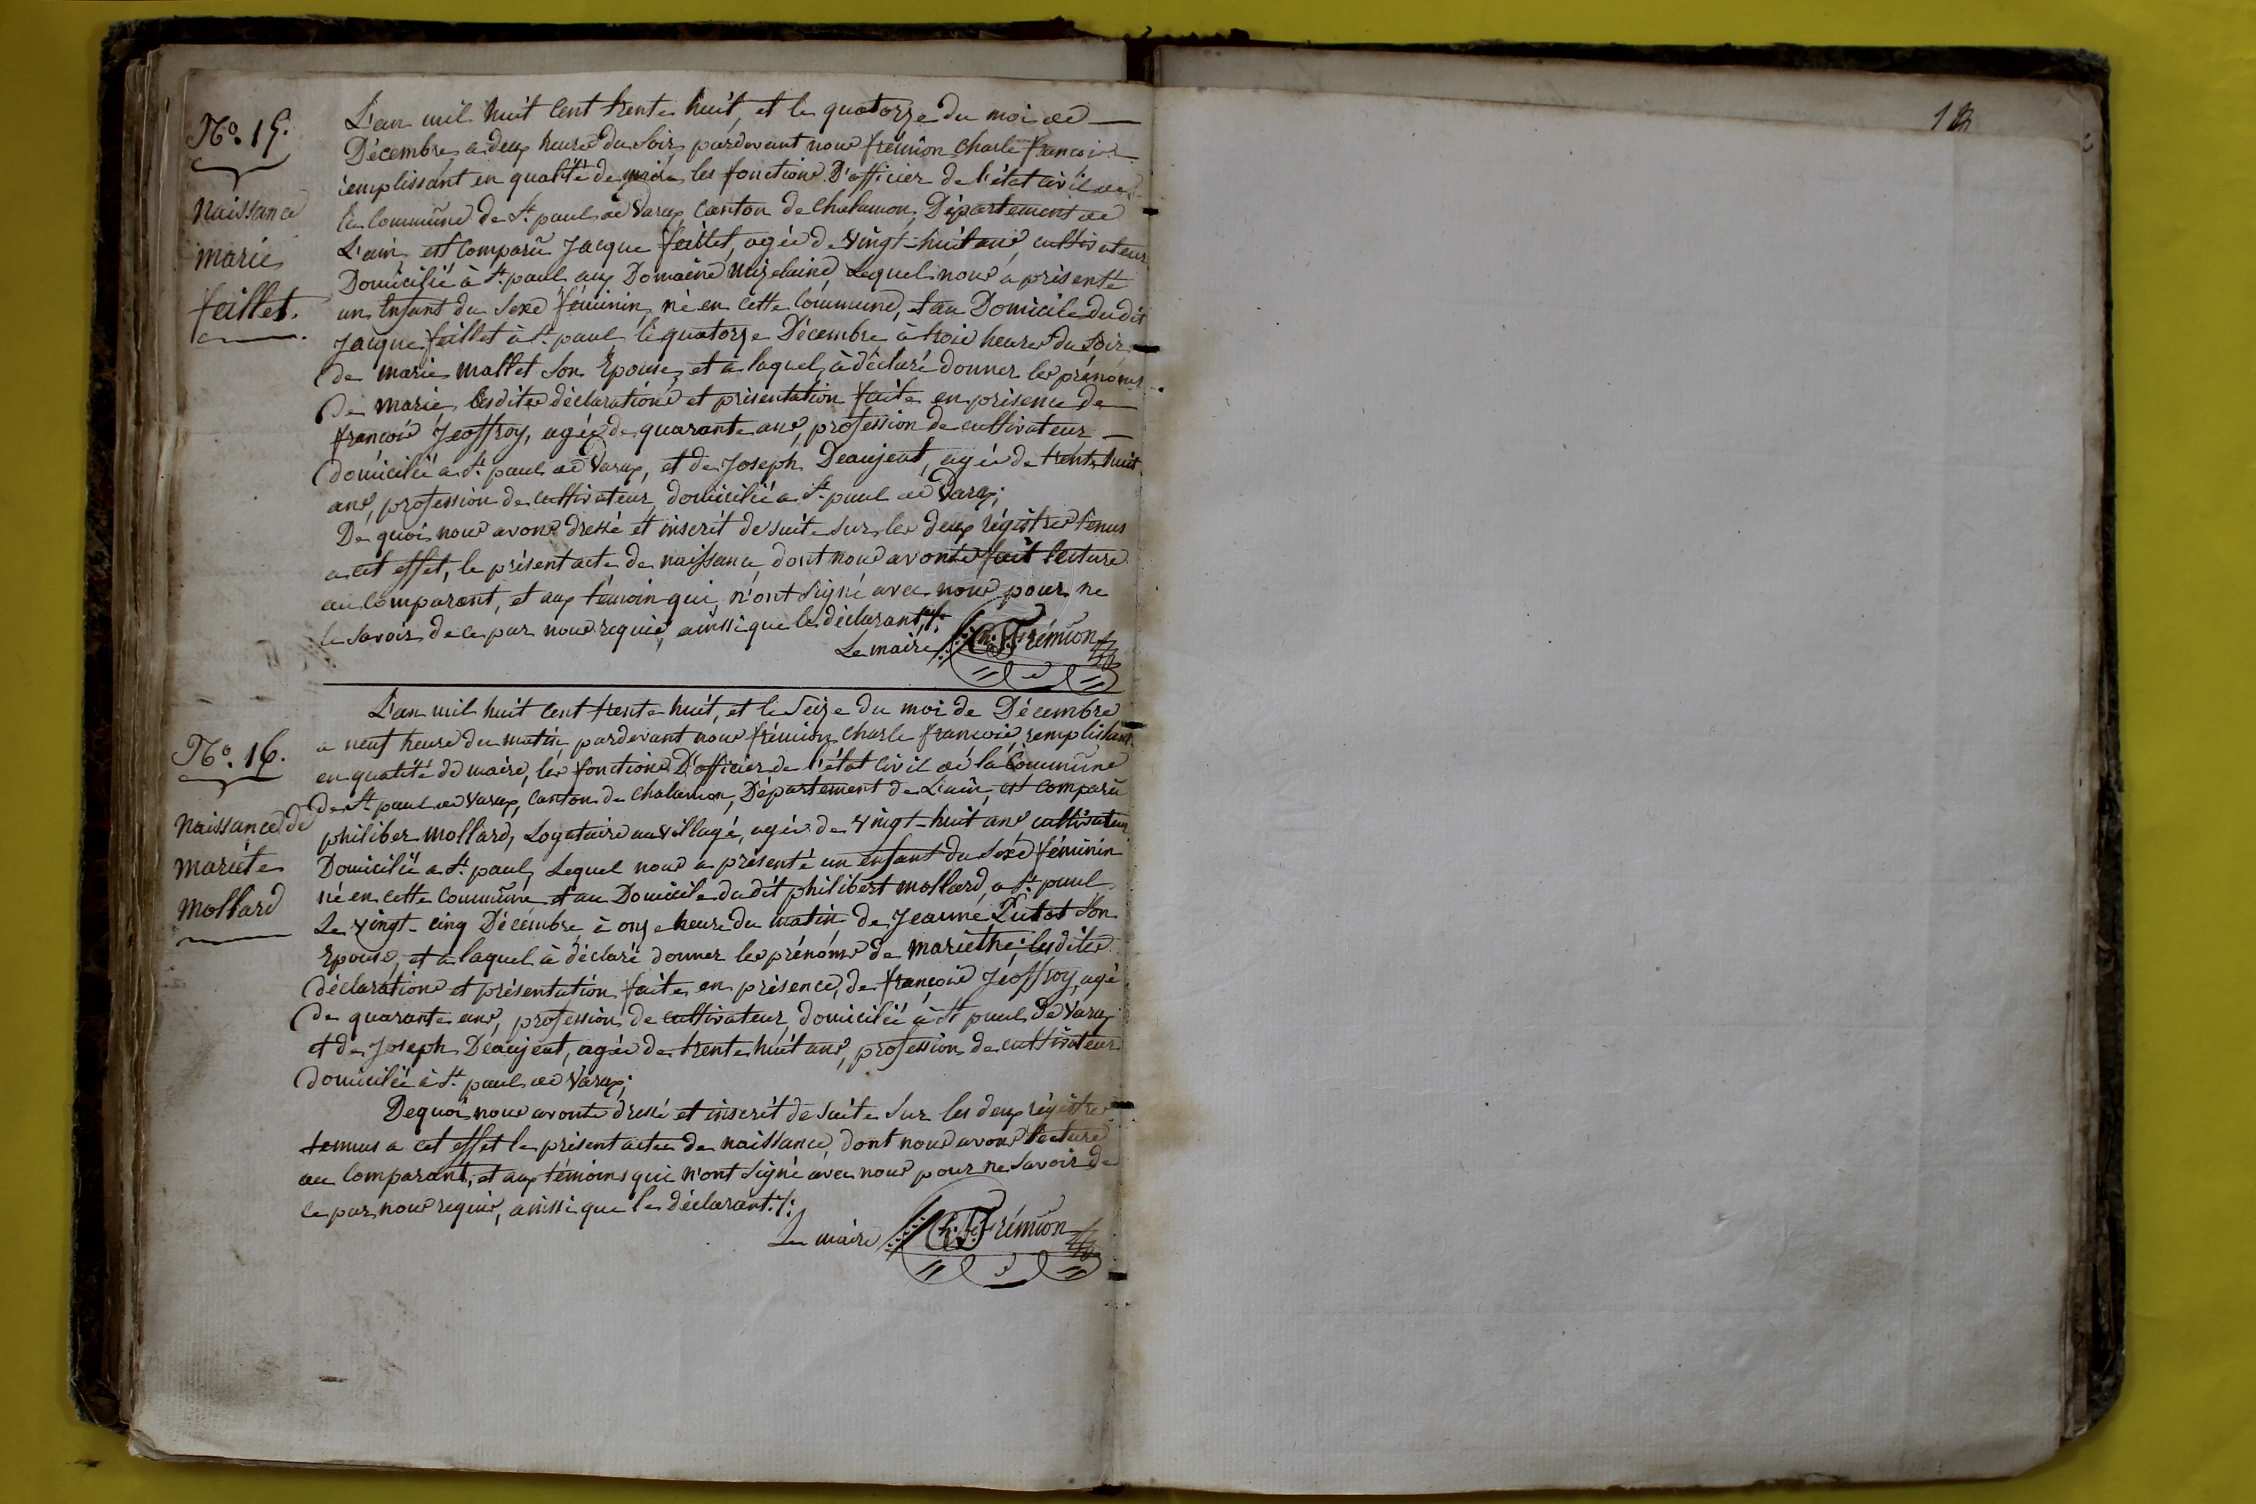 No. 15.
Naissance
marie
feillet.
L'an mil huit cent trente huit, et le quatorze du moi de
Décembre, a deux heure du Soir, pardevant nous frémion Charle françois
remplissant en qualité de maire les fonctions D'officier de l'état civil de
la Commune de St. paul de Varax, Canton de Chalamon, Département de
L'ain, est Comparu Jacque feillet, agée de vingt-huit ans, cultivateur
Domicilié à St. paul aux Domaine, Lequel nous a présenté
un Enfant du Sexe féminin, né en cette Commune, et au Domicile du dit
Jacque feillet à St. paul, le quatorze Décembre à trois heures du Soir
de marie mallet Son Epouse, et a laquel à déclaré donner les prénoms
De marie, lesdites déclarations et présentation faite en présence de
françois Jeoffroy, agée de quarante ans, profession de cultivateur
domicilié a St. paul de Varax, et de Joseph Deaujeut, agée de trente huit
ans, profession de cultivateur, domicilié a St. paul de Varax;
De quoi nous avons dressé et inscrit de suite Sur les deux régistres tenus
a cet effet, le présent acte de naissance, dont nous avons fait lecture
au Comparant, et aux témoin qui n'ont Signé avec nous pour ne
le Savoir de ce par nous requis, ainssi que le déclarant./.
Le maire Ch. F. Frémion
No. 16.
Naissance de
mariéte
mollard
L'an mil huit Cent trente huit, et le Seize du moi de Décembre
a neuf heure du matin pardevant nous frémion Charle françois, remplissant
en qualité de maire, les fonctions D'officier de l'état Civil de la Commune
de St. paul de Varax, Canton de Chalamon, Département de L'ain, est Comparu
philiber mollard, Logataire au village, agée de vingt-huit ans cultivateur
Domicilié a St. paul, Lequel nous a présenté un enfant du Sexe féminin
né en cette Commune et au Domicile du dit philibert mollard, a St. paul
Le vingt-cinq Décembre, à onze heure du matin, de Jeanne Putot Son
Epouse, et a laquel à déclaré donner les prénoms de mariethe; lesdites
déclarations et présentation faite en présence, de françois Jeoffroy, agé
de quarante ans, profession de cultivateur, domicilié à St paul De Varax
et de Joseph Deaujeut, agée de trente huit ans, profession de cultivateur
domicilié à St. paul de Varax;
Dequoi nous avonts dressé et inscrit de Suite Sur les deux régistres
temnus a cet effet le présent actee de naissance, dont nous avons lecture
au Comparant, et aux témoins qui n'ont Signé avec nous pour ne Savoir de
ce par nous requis, ainssi que le déclarant./.
Le maire Ch. F. Frémion